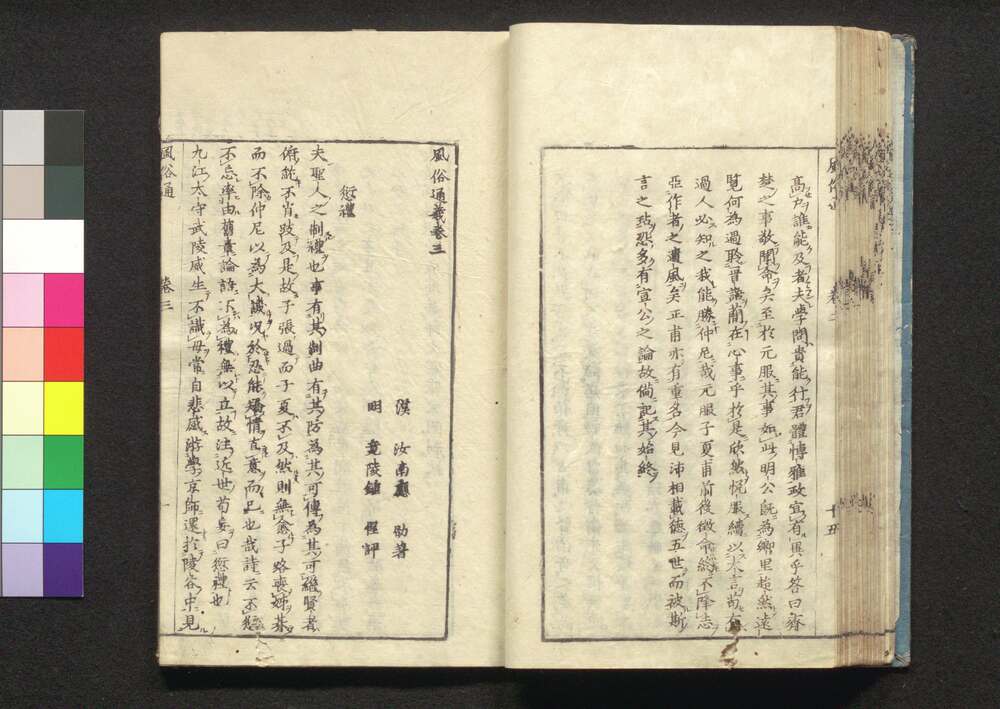 風俗通 卷二 十五
高力誰能及者夫學問貴能行君體博雅政宜有異乎答曰齊
楚之事敬聞命矣至於元服其事如此明公既為鄉里超然遠
覽何為過聆晉語簡在心事乎於是欣然悅服續以大言苟有
過人必知之我能勝仲尼哉元服子夏甫前後徵命終不降志
亞作者之遺風矣正甫亦有重名今見沛相載德五世而被斯
言之玷恐多有宣公之論故備記其始終
風俗通義卷三
漢 汝南應 劭著
明 竟陵鍾 惺評
愆禮
夫聖人之制禮也事有其制曲有其防為其可傳為其可繼賢者
俯就不肖跂及是故子張過而子夏不及然則無愈子路喪姊朞
而不除仲尼以為大譏況於忍能矯情直意而已也哉詩云不愆
不忘率由舊章論語不為禮無以立故注近世苟妄曰愆禮也
九江太守武陵威生不識母常自悲感游學京師還於陵谷中見
風俗通 卷三 一